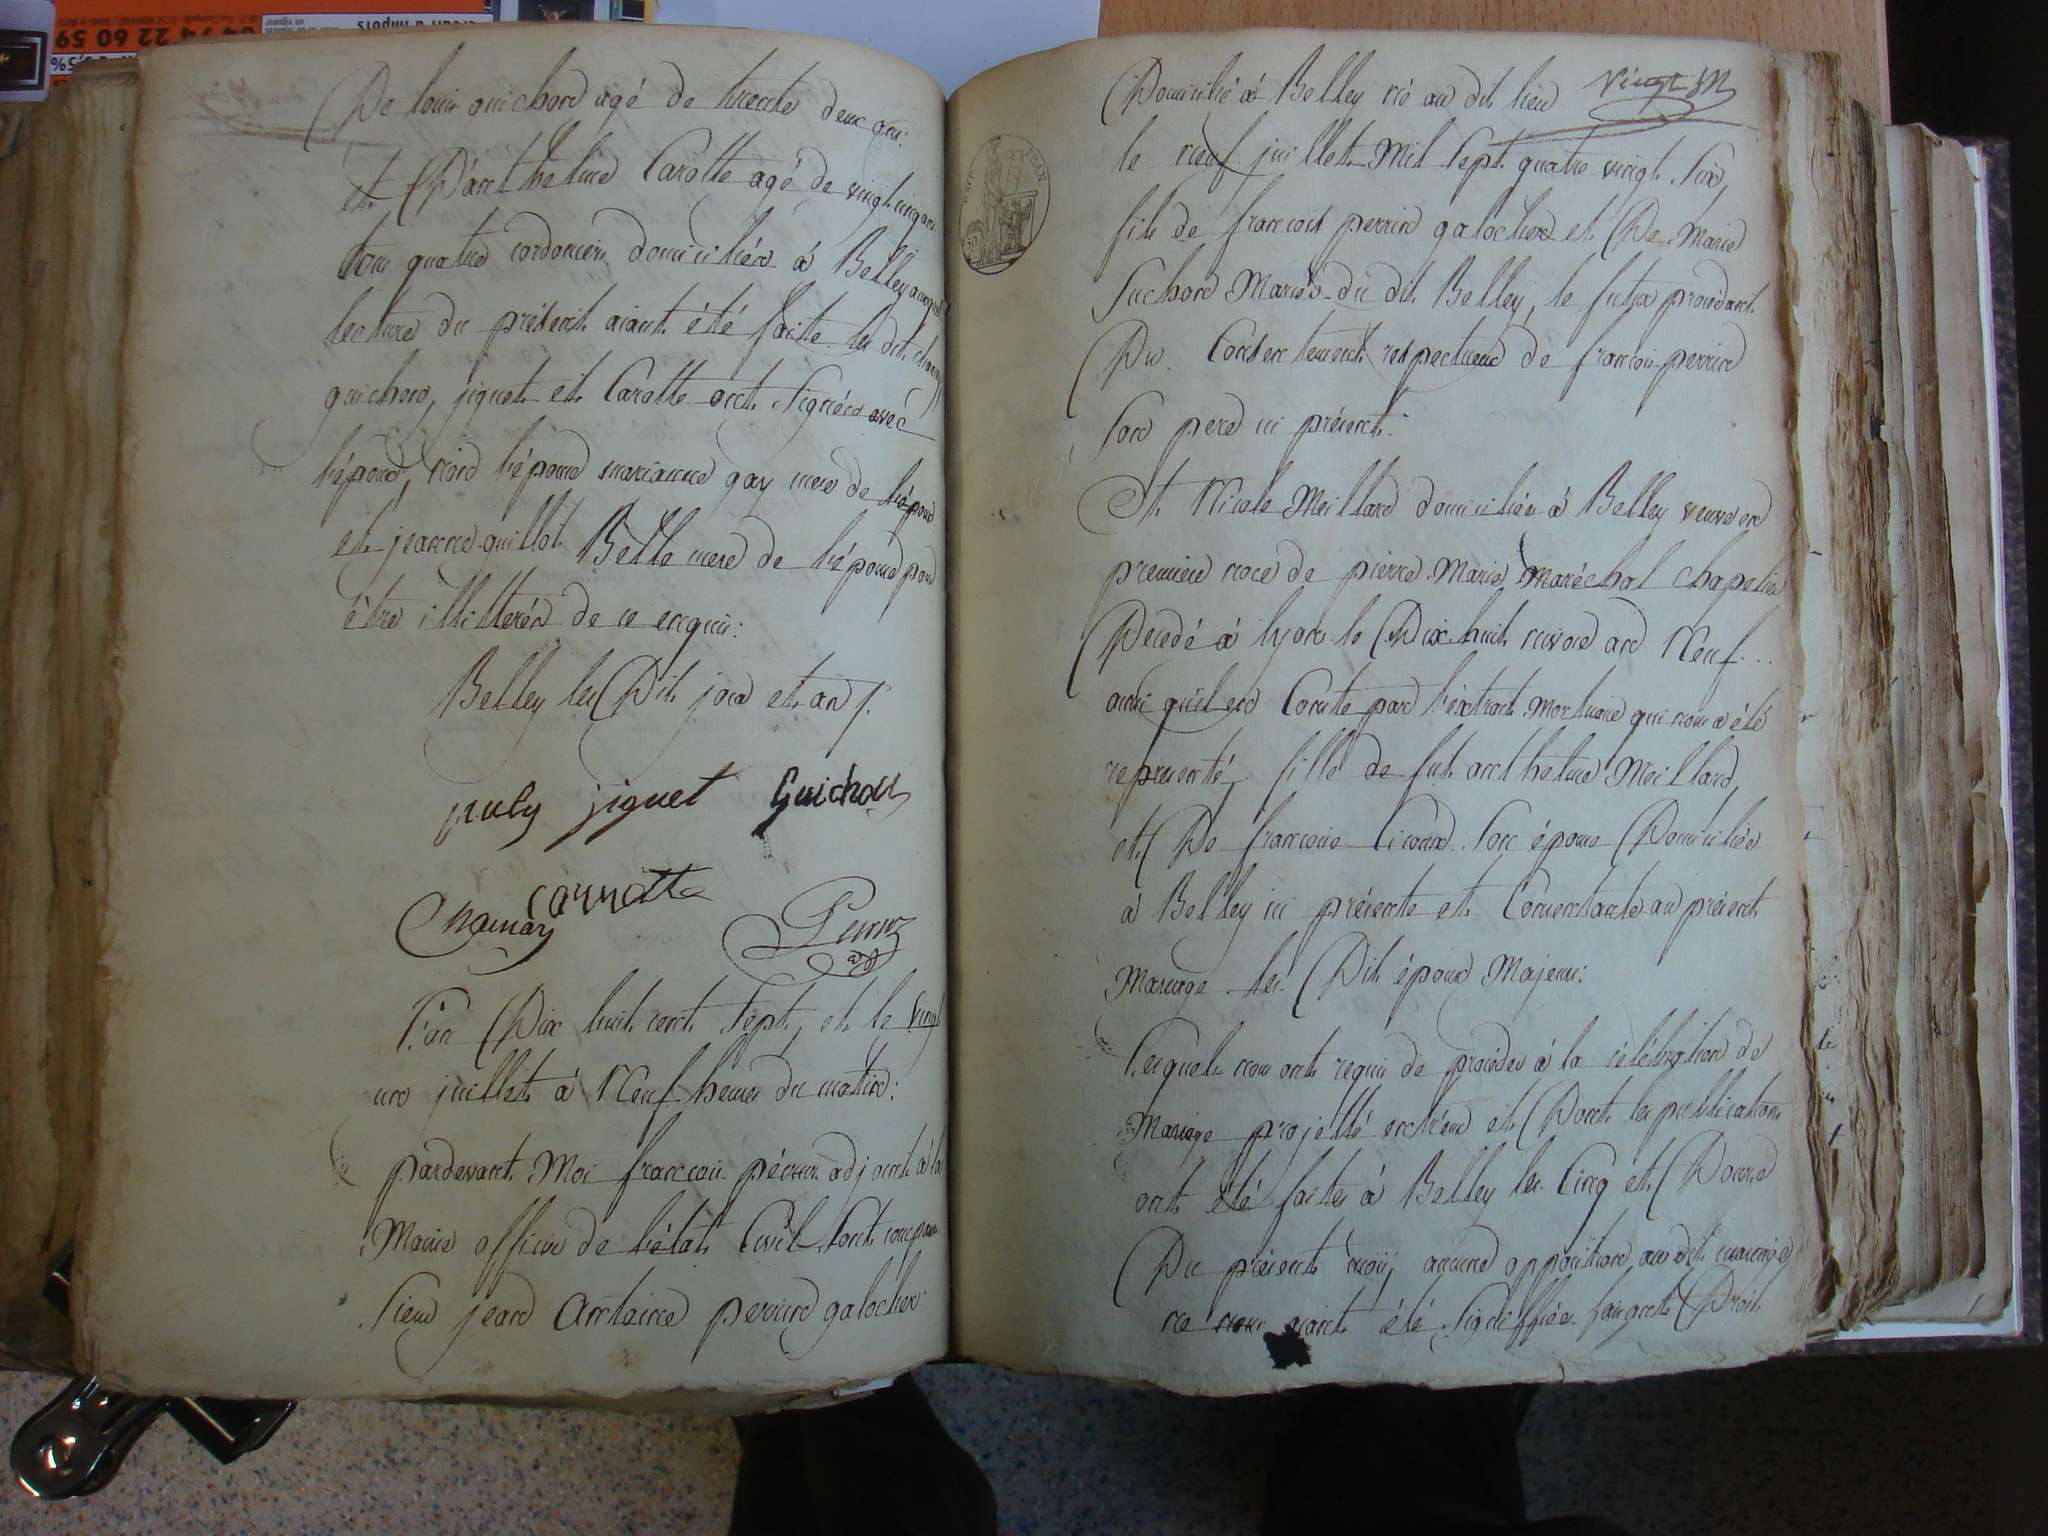 04 74 22 60 59
De louis guichard agé de trente deux ans.
et D'anthelme Carotte agé de vingt cinq ans
tous quatre cordoniers domiciliés à Belley auxquels
lecture du présent aiant été faite les dits chamay
guichard, jiguet et Carotte ont signés avec
l'époux, non l'épouse marianne gay mere de l'époux
et jeanne guillot Belle mere de l'épouse pour
être illitterés de ce enquis:
Belley les Dits jour et an /.
jiguet Guichard
Chamay carrotte
L'an Dix huit cent sept, et le vingt
un juillet à Neuf heures du matin:
pardevant Moi françois adjoint à la
Mairie officier de l'état Civil sont comparus
sieur jean Antoine perrin galochier
Domicilié à Belley né au dit lieu
le neuf juillet Mil sept quatre vingt six,
fils de françois perrin galochier et De Marie
Suchard Mariés du dit Belley, le futur procédant
Du Consentement respectueux de françois perrin
son pere ici présent:
Et Nicole Meillard domiciliée à Belley veuve en
premiere noce de pierre Marie Maréchal chapelier
Décedé à lyon le Dix huit nivose an Neuf...
ainsi qu'il en Conste par l'extrait Mortuaire qui nous a été
représenté, fille de fut anthelme Meillard,
et De françoise son épouse Domiciliée
à Belley ici présente et Consentante au présent
Mariage. les Dits époux Majeurs:
Lesquels nous ont requis de procéder à la célébration de
Mariage projetté entr'eux et Dont les publications
ont été faites à Belley les Cinq et Douze
Du présent mois, aucune opposition au dit mariage
ne nous aiant été signiffiée faisant Droit